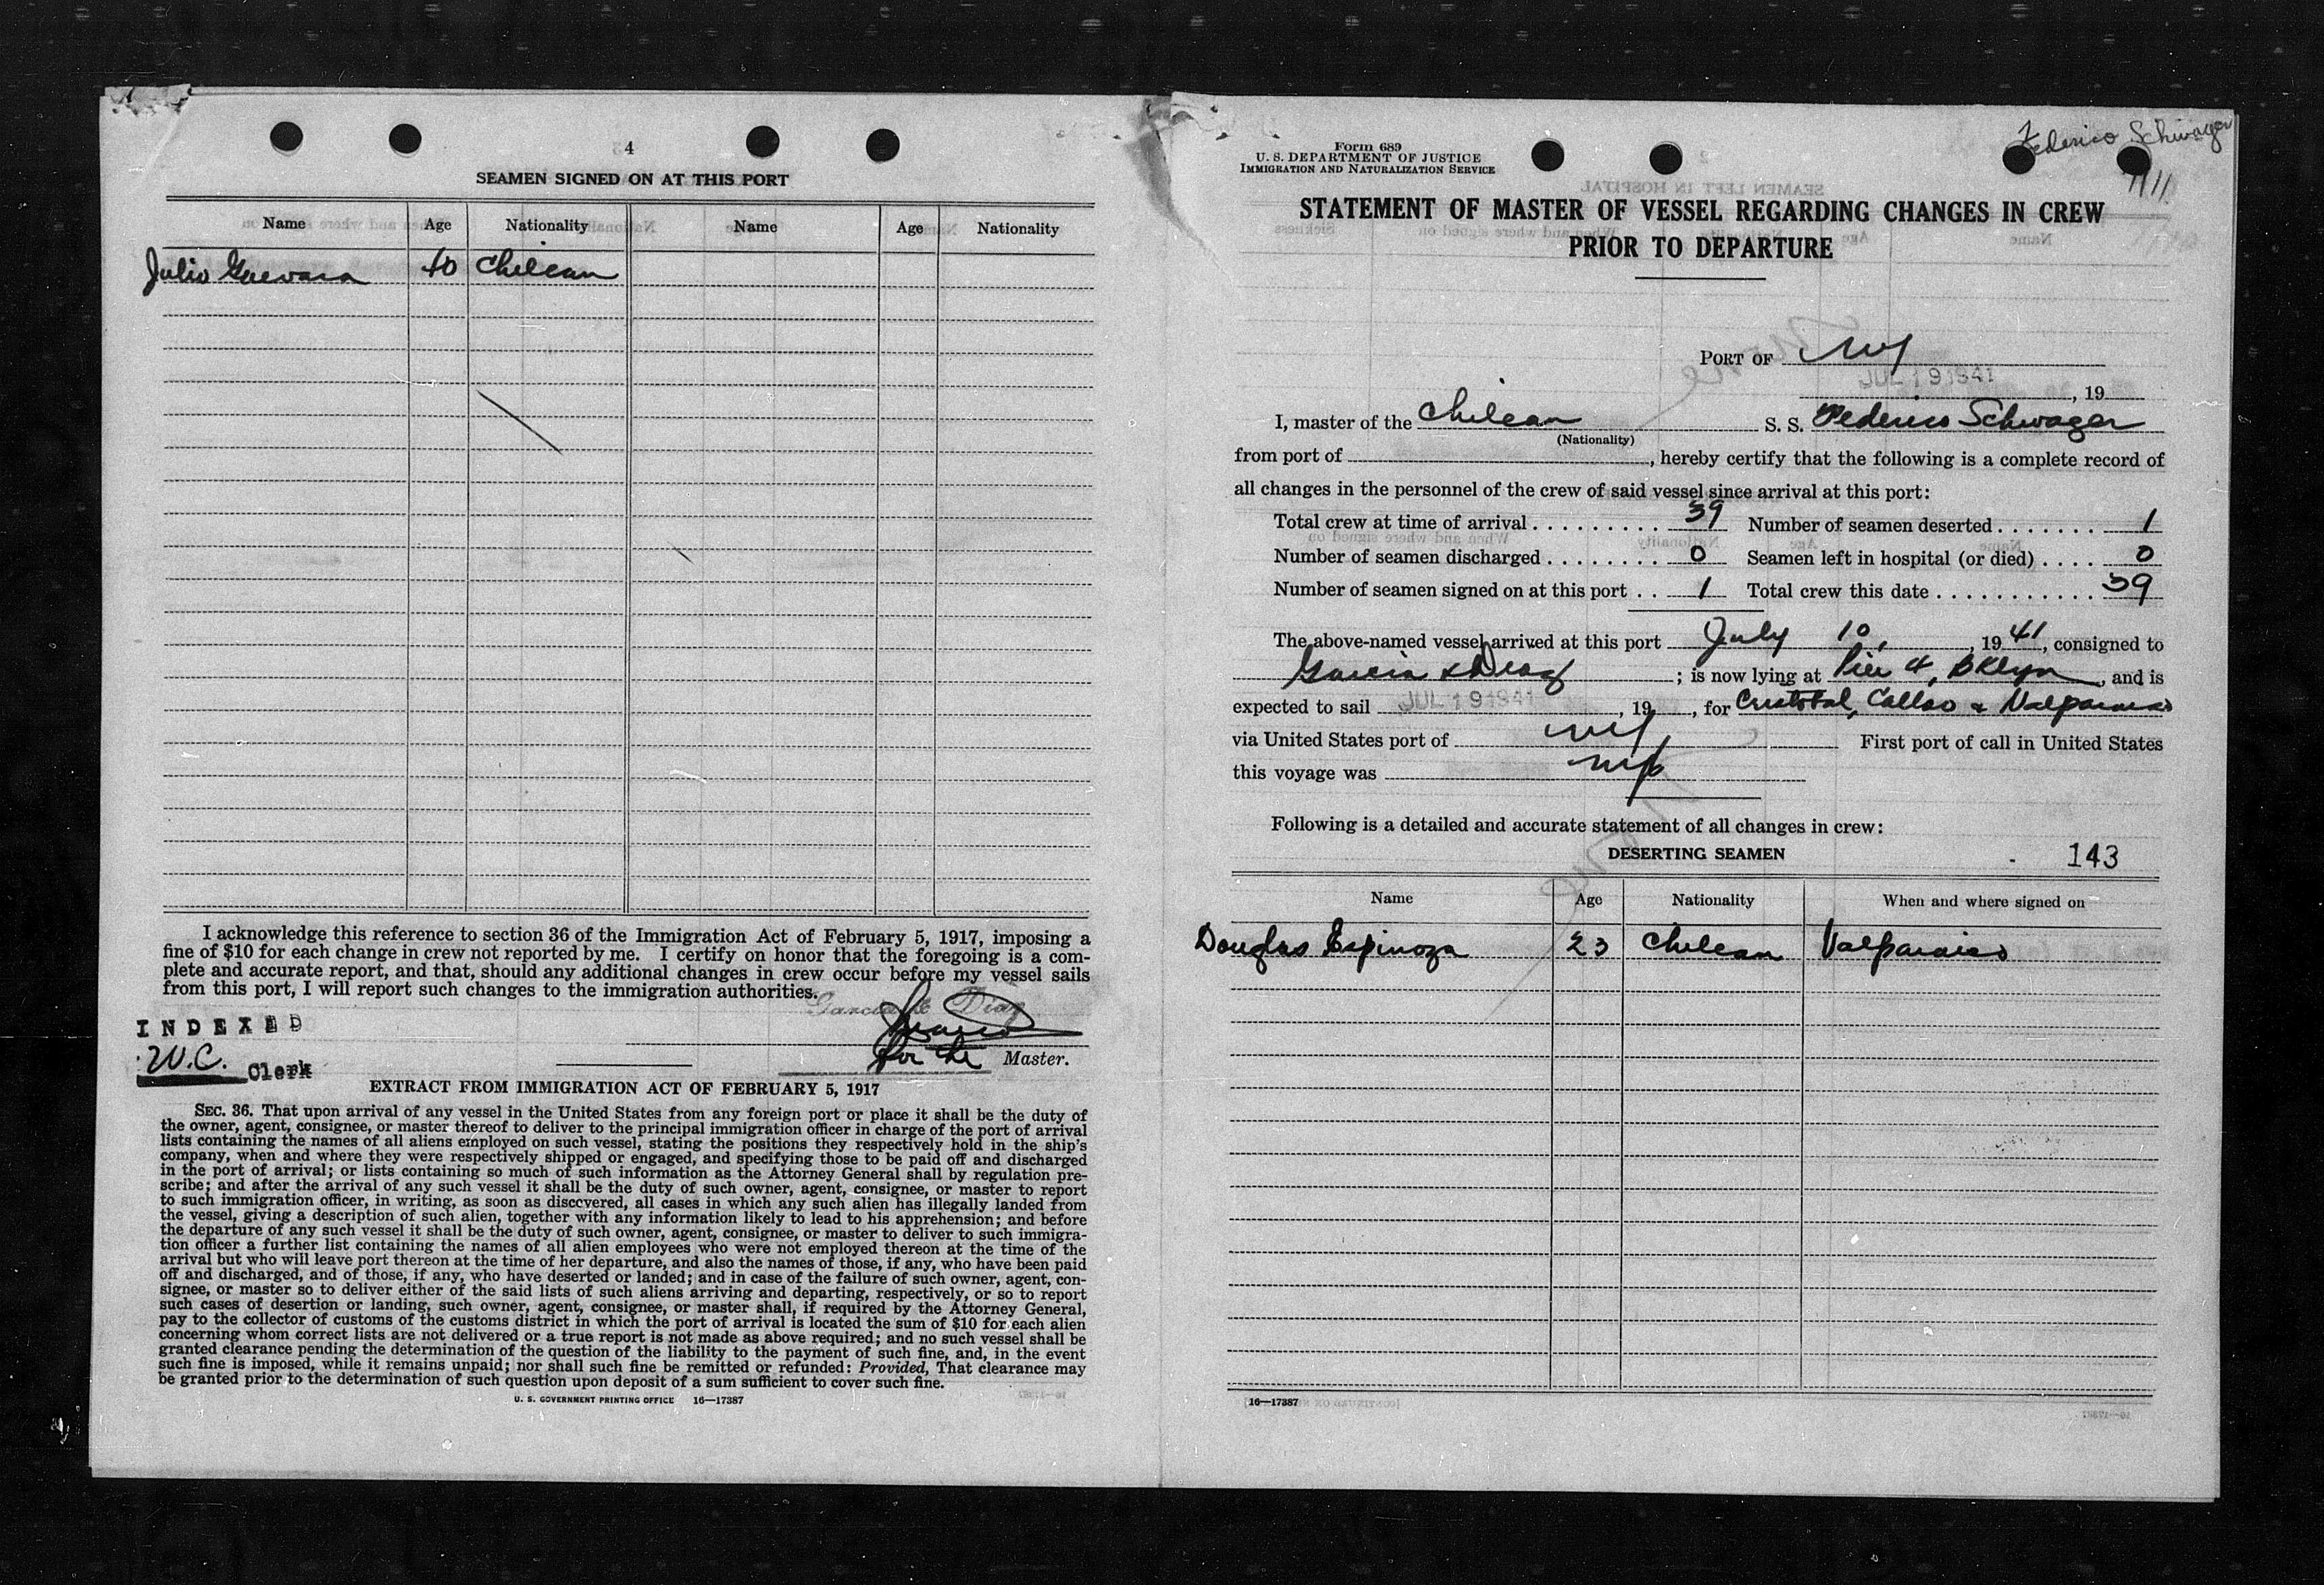 4
SEAMEN SIGNED ON AT THIS PORT
Name Age Nationality Name Age Nationality
Julio Guevara 40 Chilean
I acknowledge this reference to section 36 of the Immigration Act of February 5, 1917, imposing a
fine of $10 for each change in crew not reported by me. I certify on honor that the foregoing is a com-
plete and accurate report, and that, should any additional changes in crew occur before my vessel sails
from this port, I will report such changes to the immigration authorities.
Garcia & Diaz
INDEXED
W.C. Clerk
for the Master.
EXTRACT FROM IMMIGRATION ACT OF FEBRUARY 5, 1917
SEC. 36. That upon arrival of any vessel in the United States from any foreign port or place it shall be the duty of
the owner, agent, consignee, or master thereof to deliver to the principal immigration officer in charge of the port of arrival
lists containing the names of all aliens employed on such vessel, stating the positions they respectively hold in the ship's
company, when and where they were respectively shipped or engaged, and specifying those to be paid off and discharged
in the port of arrival; or lists containing so much of such information as the Attorney General shall by regulation pre-
scribe; and after the arrival of any such vessel it shall be the duty of such owner, agent, consignee, or master to report
to such immigration officer, in writing, as soon as discovered, all cases in which any such alien has illegally landed from
the vessel, giving a description of such alien, together with any information likely to lead to his apprehension; and before
the departure of any such vessel it shall be the duty of such owner, agent, consignee, or master to deliver to such immigra-
tion officer a further list containing the names of all alien employees who were not employed thereon at the time of the
arrival but who will leave port thereon at the time of her departure, and also the names of those, if any, who have been paid
off and discharged, and of those, if any, who have deserted or landed; and in case of the failure of such owner, agent, con-
signee, or master so to deliver either of the said lists of such aliens arriving and departing, respectively, or so to report
such cases of desertion or landing, such owner, agent, consignee, or master shall, if required by the Attorney General,
pay to the collector of customs of the customs district in which the port of arrival is located the sum of $10 for each alien
concerning whom correct lists are not delivered or a true report is not made as above required; and no such vessel shall be
granted clearance pending the determination of the question of the liability to the payment of such fine, and, in the event
such fine is imposed, while it remains unpaid; nor shall such fine be remitted or refunded: Provided, That clearance may
be granted prior to the determination of such question upon deposit of a sum sufficient to cover such fine.
U. S. GOVERNMENT PRINTING OFFICE 16—17387
Federico Schwager
Form 689
U. S. DEPARTMENT OF JUSTICE
IMMIGRATION AND NATURALIZATION SERVICE
STATEMENT OF MASTER OF VESSEL REGARDING CHANGES IN CREW
PRIOR TO DEPARTURE
PORT OF NY
JUL 19 1941, 19
I, master of the Chilean S. S. Federico Schwager
(Nationality)
from port of , hereby certify that the following is a complete record of
all changes in the personnel of the crew of said vessel since arrival at this port:
Total crew at time of arrival 39 Number of seamen deserted 1
Number of seamen discharged 0 Seamen left in hospital (or died) 0
Number of seamen signed on at this port 1 Total crew this date 39
The above-named vessel arrived at this port July 10, 1941, consigned to
Garcia & Diaz ; is now lying at Pier 4, Bklyn, and is
expected to sail JUL 19 1941, 19 , for Cristobal, Callao & Valparaiso
via United States port of NY First port of call in United States
this voyage was NY
Following is a detailed and accurate statement of all changes in crew:
DESERTING SEAMEN 143
Name Age Nationality When and where signed on
Douglas Espinoza 23 Chilean Valparaiso
16—17387